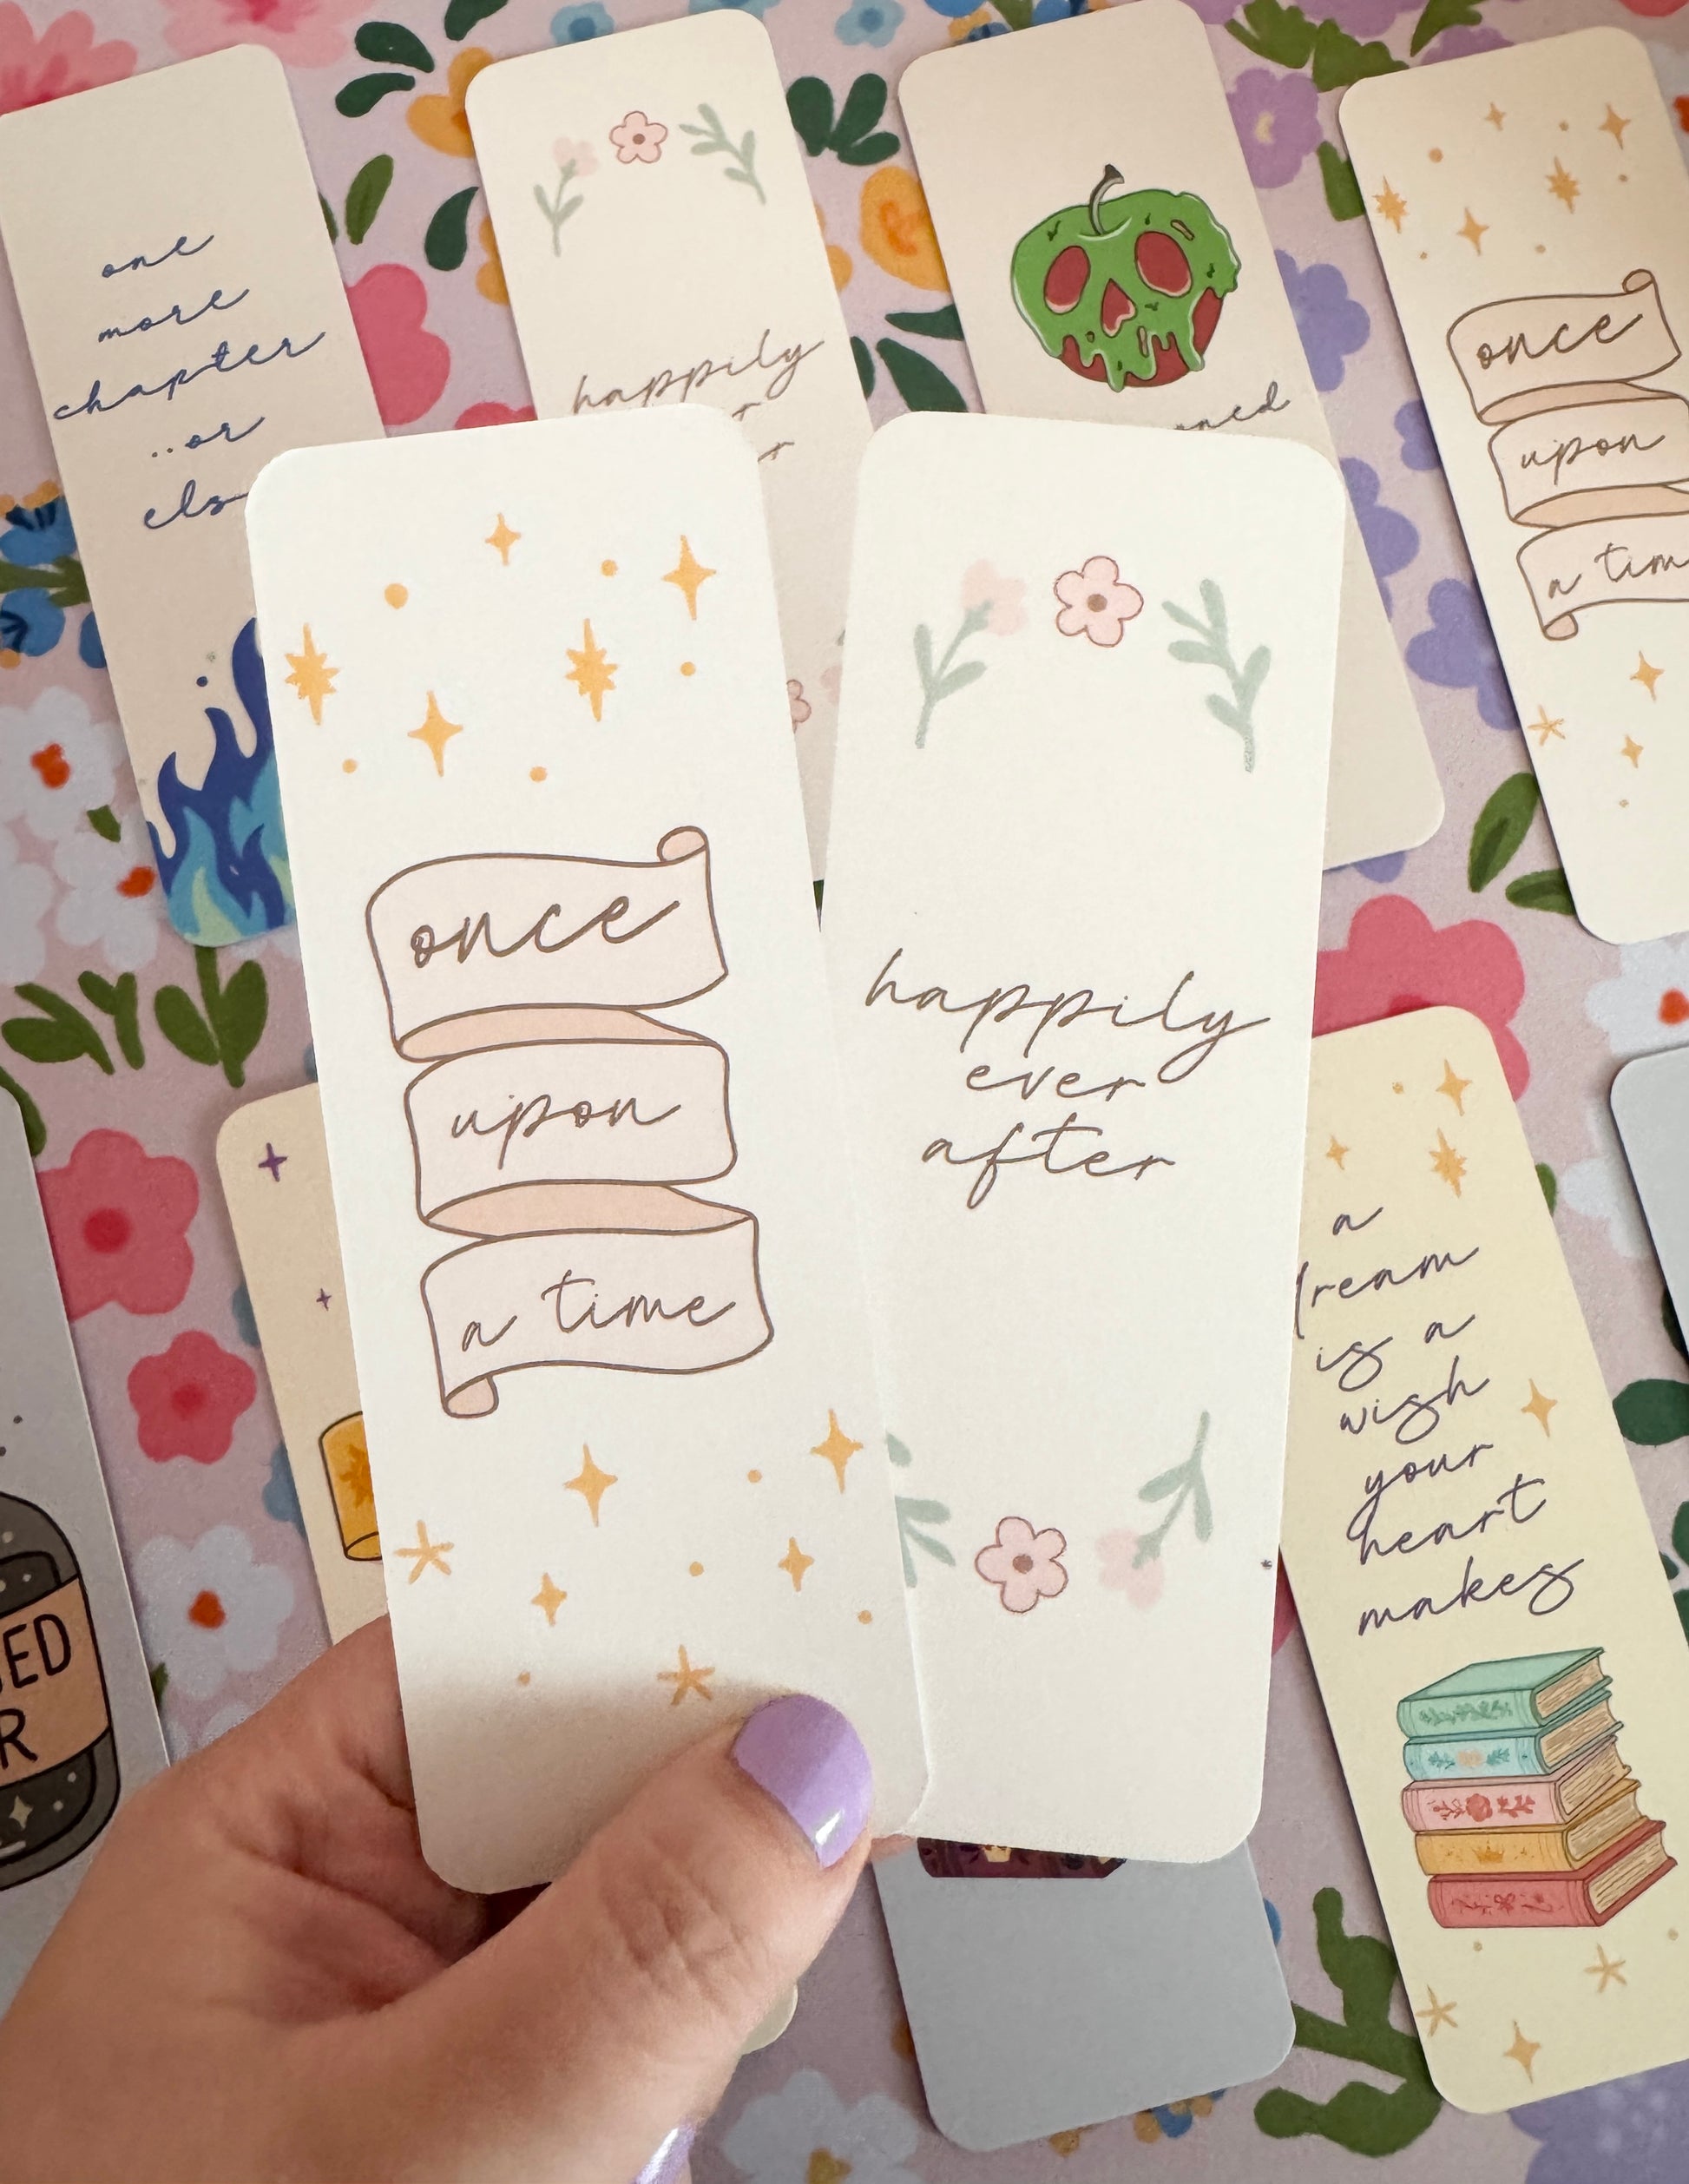 one
more
chapter
..or
happily
once
upon
a
once
upon
a time
happily
ever
after
a
is a
wish
your
heart
makes